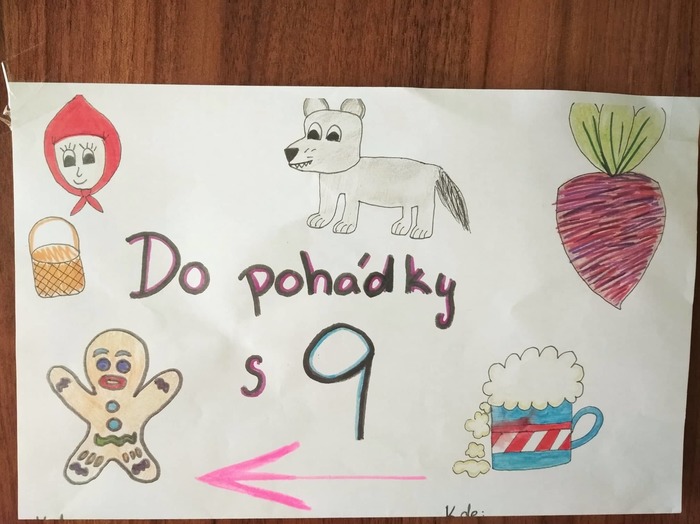 Do pohádky
s 9
Kde: